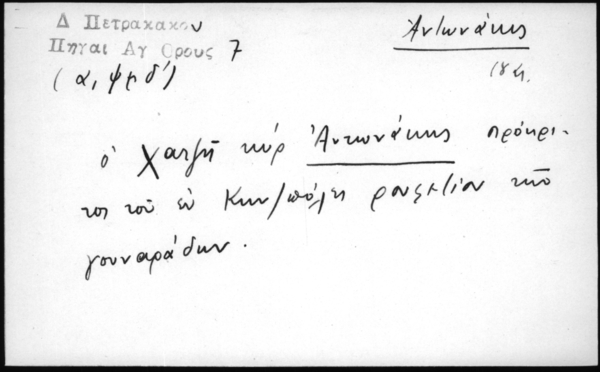 Δ Πετρακακου
Πηγαι Αγ Ορους 7
(α, ψμδ')
Ἀντωνάκης
ὁ Χατζῆ κύρ Ἀντωνάκης πρόκρι-
τος τοῦ ἐν Κων/πόλει ρουφετίου τῶν
γουναράδων.